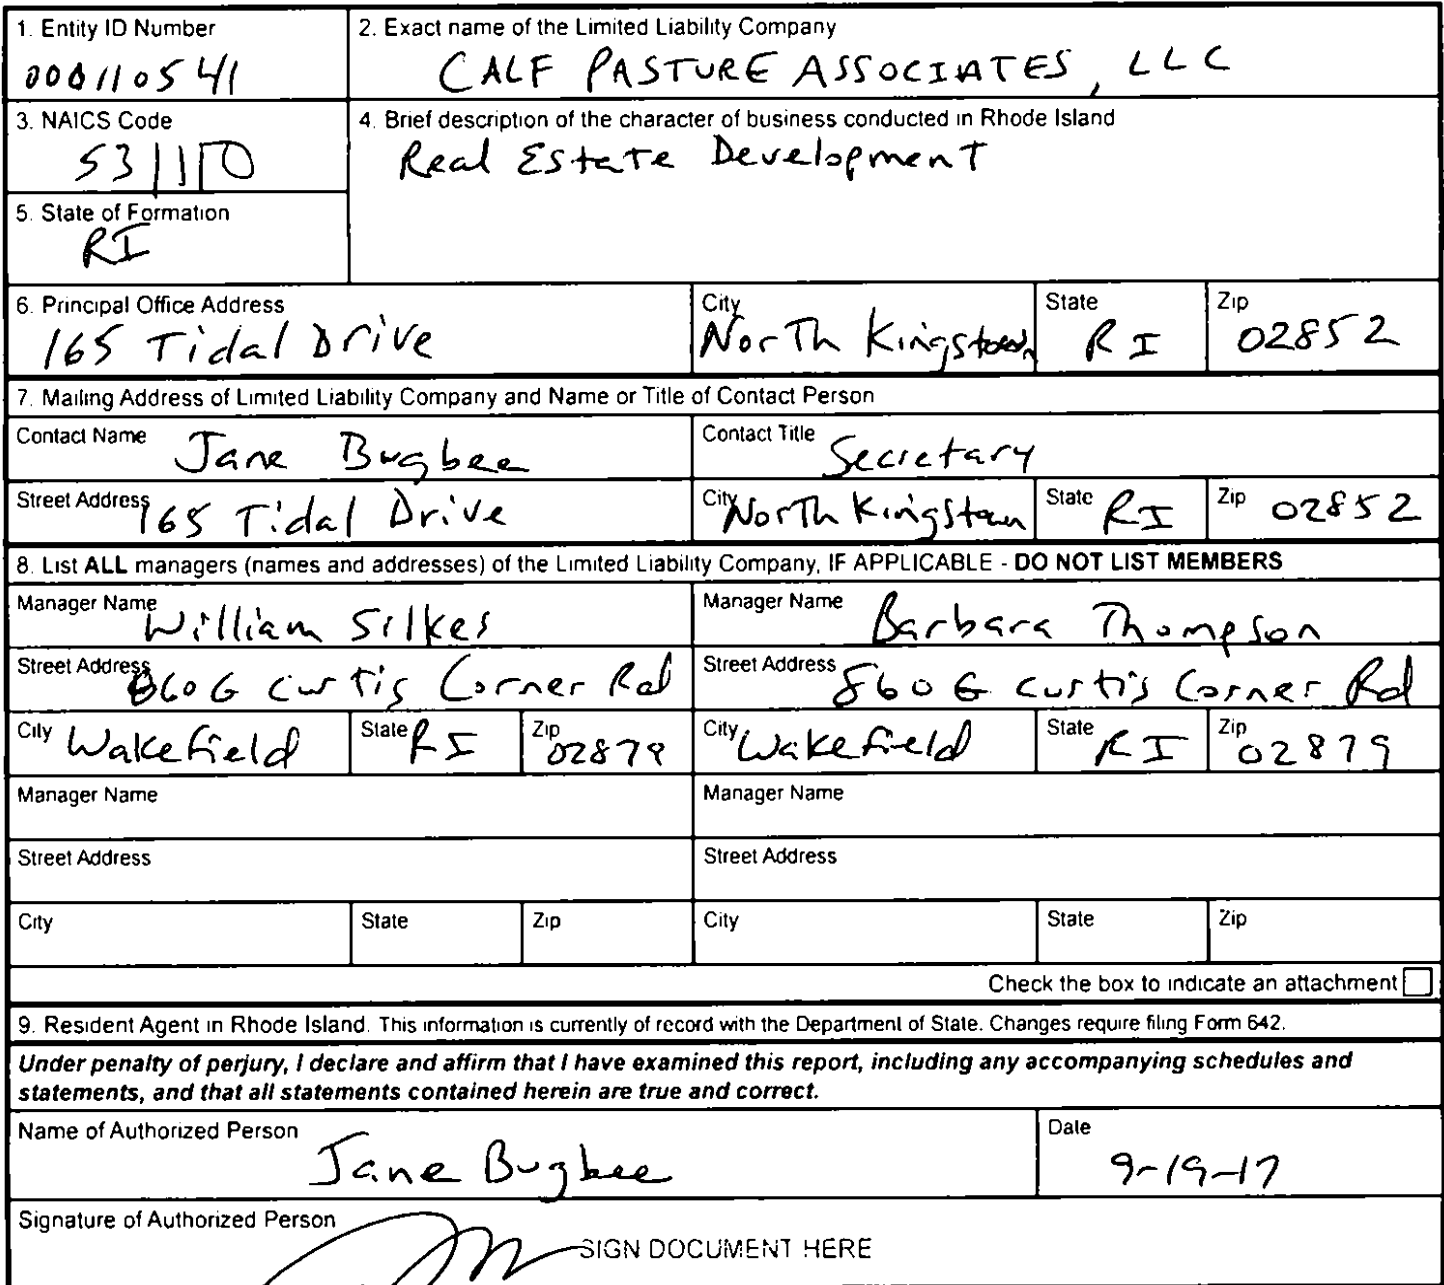 1. Entity ID Number
000110541
2. Exact name of the Limited Liability Company
CALF PASTURE ASSOCIATES, LLC
3. NAICS Code
531110
4. Brief description of the character of business conducted in Rhode Island
Real Estate Development
5. State of Formation
RI
6. Principal Office Address
165 Tidal Drive
City
North Kingstown
State
RI
Zip
02852
7. Mailing Address of Limited Liability Company and Name or Title of Contact Person
Contact Name Jane Bugbee
Contact Title Secretary
Street Address 165 Tidal Drive
City North Kingstown
State RI
Zip 02852
8. List ALL managers (names and addresses) of the Limited Liability Company, IF APPLICABLE - DO NOT LIST MEMBERS
Manager Name William Silkes
Manager Name Barbara Thompson
Street Address 860 G Curtis Corner Rd
Street Address 860 G Curtis Corner Rd
City Wakefield
State RI
Zip 02879
City Wakefield
State RI
Zip 02879
Manager Name
Manager Name
Street Address
Street Address
City
State
Zip
City
State
Zip
Check the box to indicate an attachment
9. Resident Agent in Rhode Island. This information is currently of record with the Department of State. Changes require filing Form 642.
Under penalty of perjury, I declare and affirm that I have examined this report, including any accompanying schedules and
statements, and that all statements contained herein are true and correct.
Name of Authorized Person
Jane Bugbee
Date
9-19-17
Signature of Authorized Person
SIGN DOCUMENT HERE